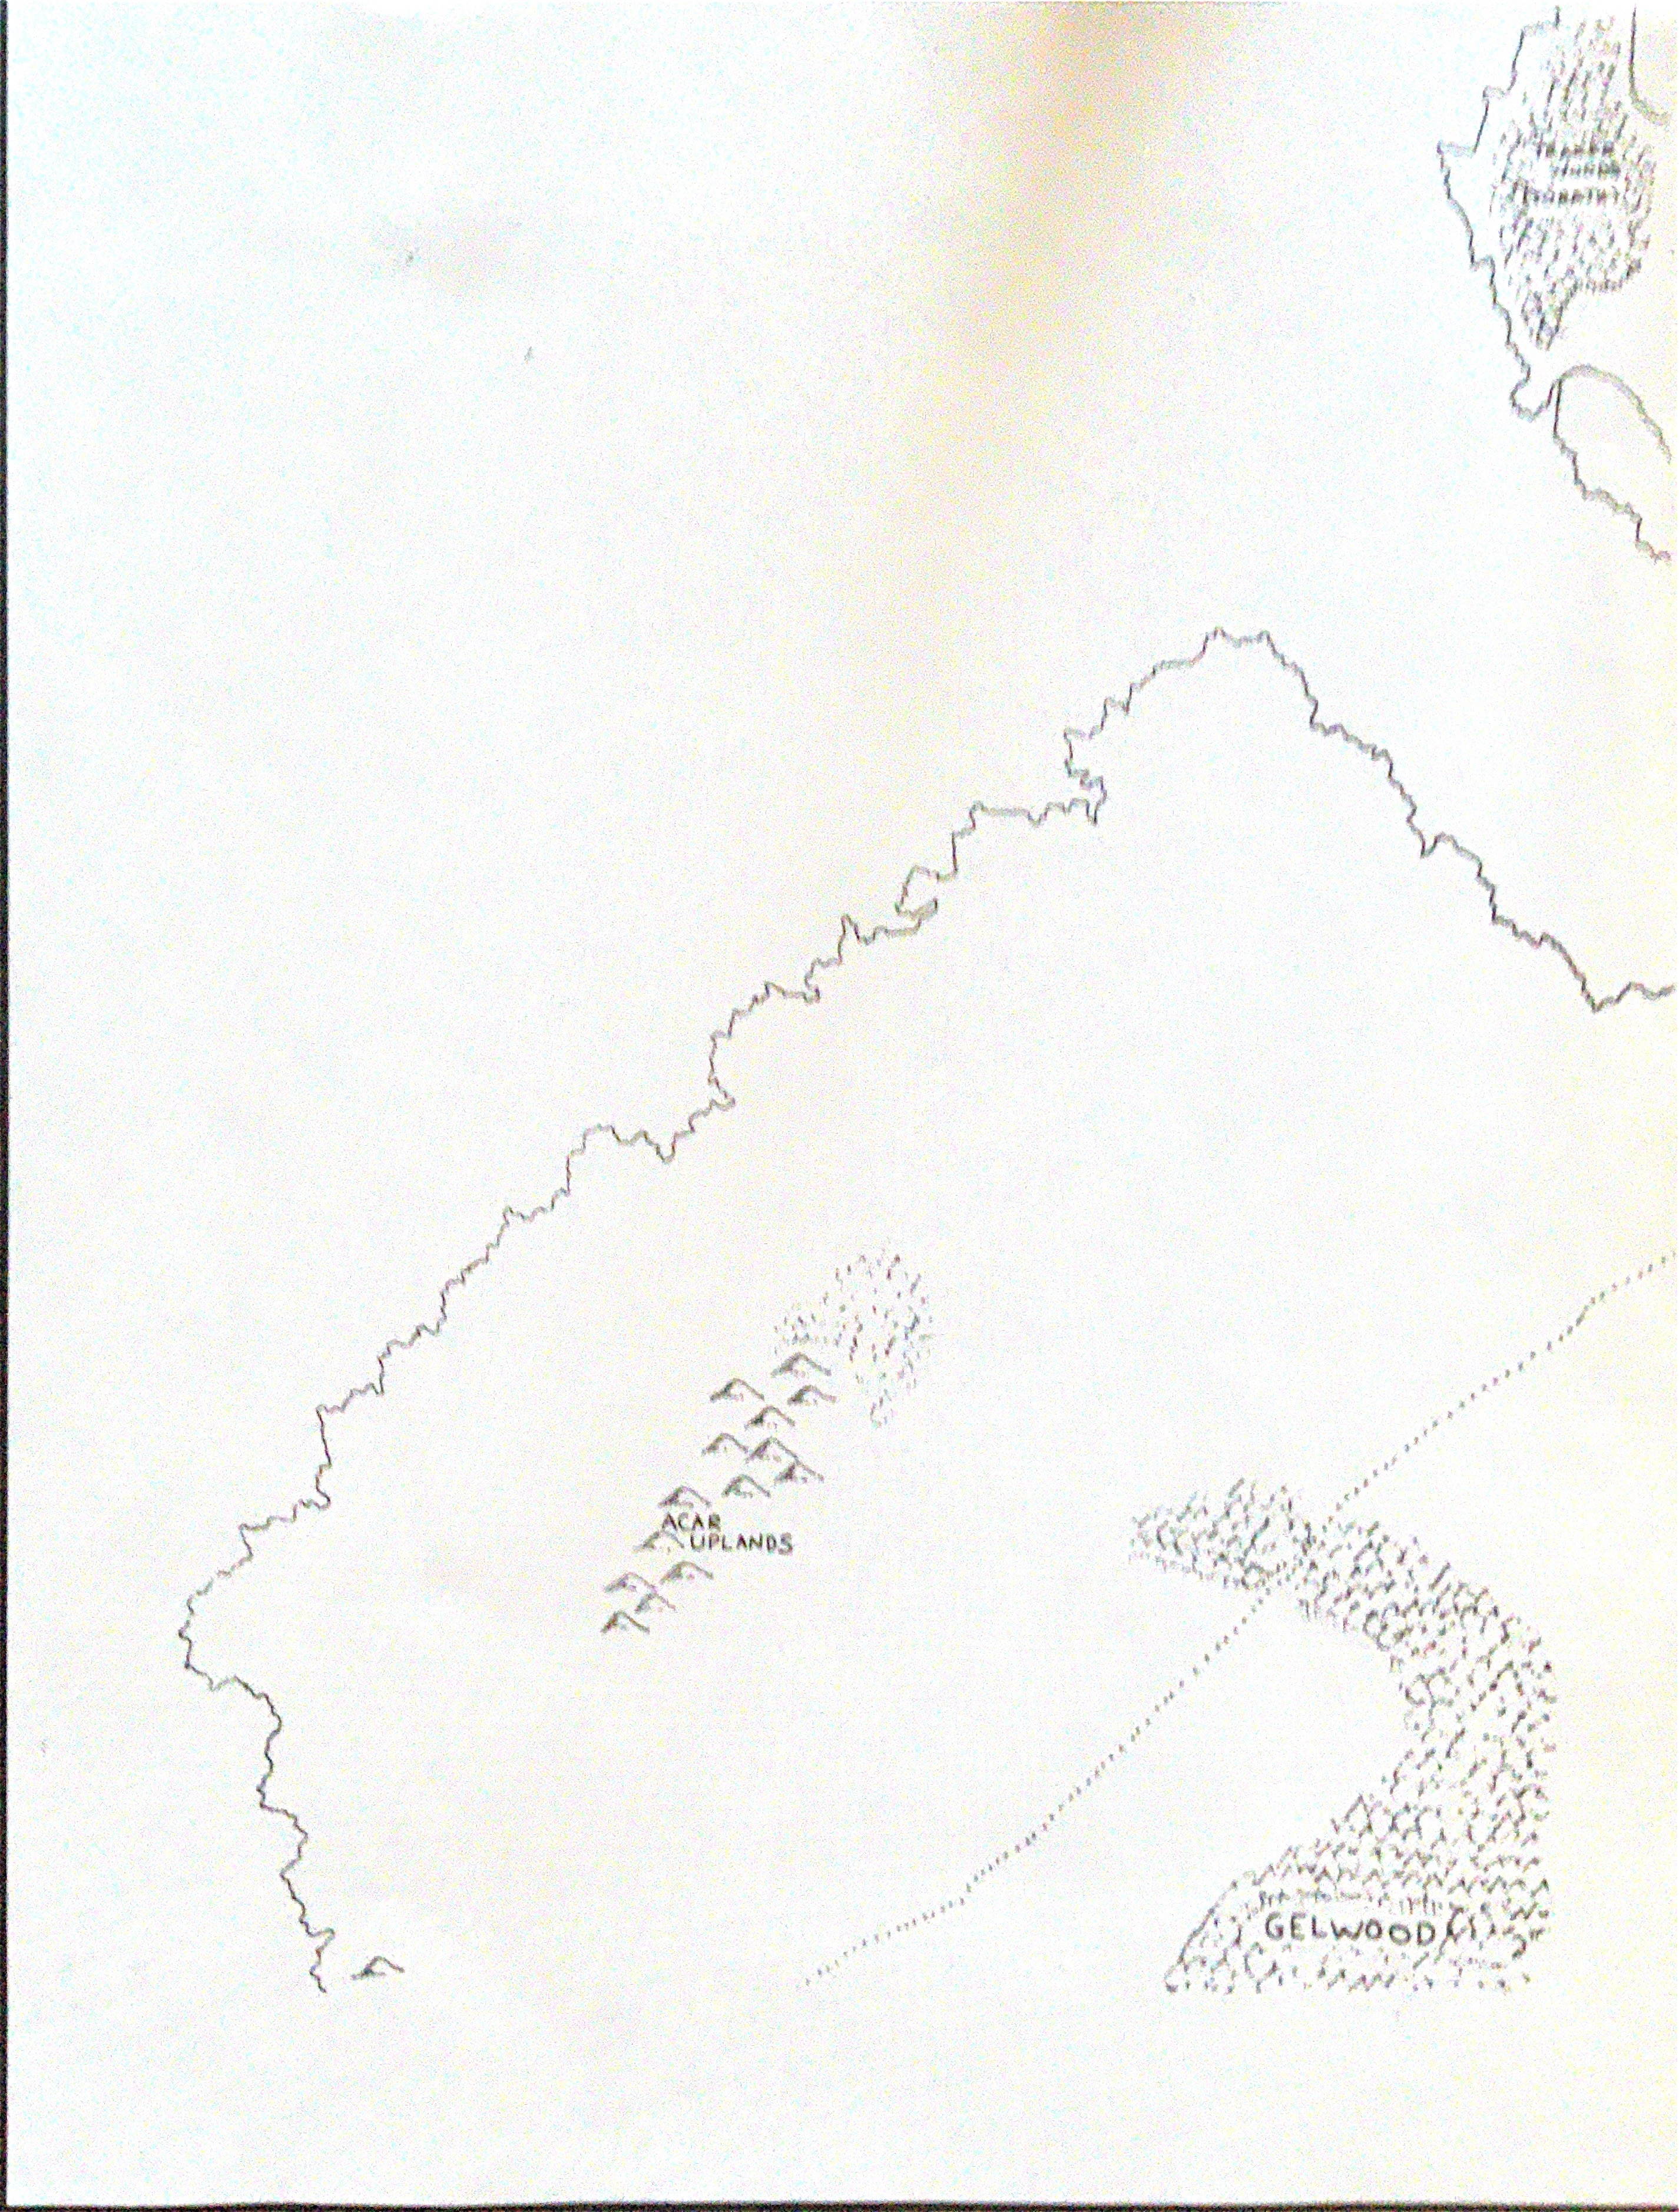 ACAR
UPLANDS
GELWOOD